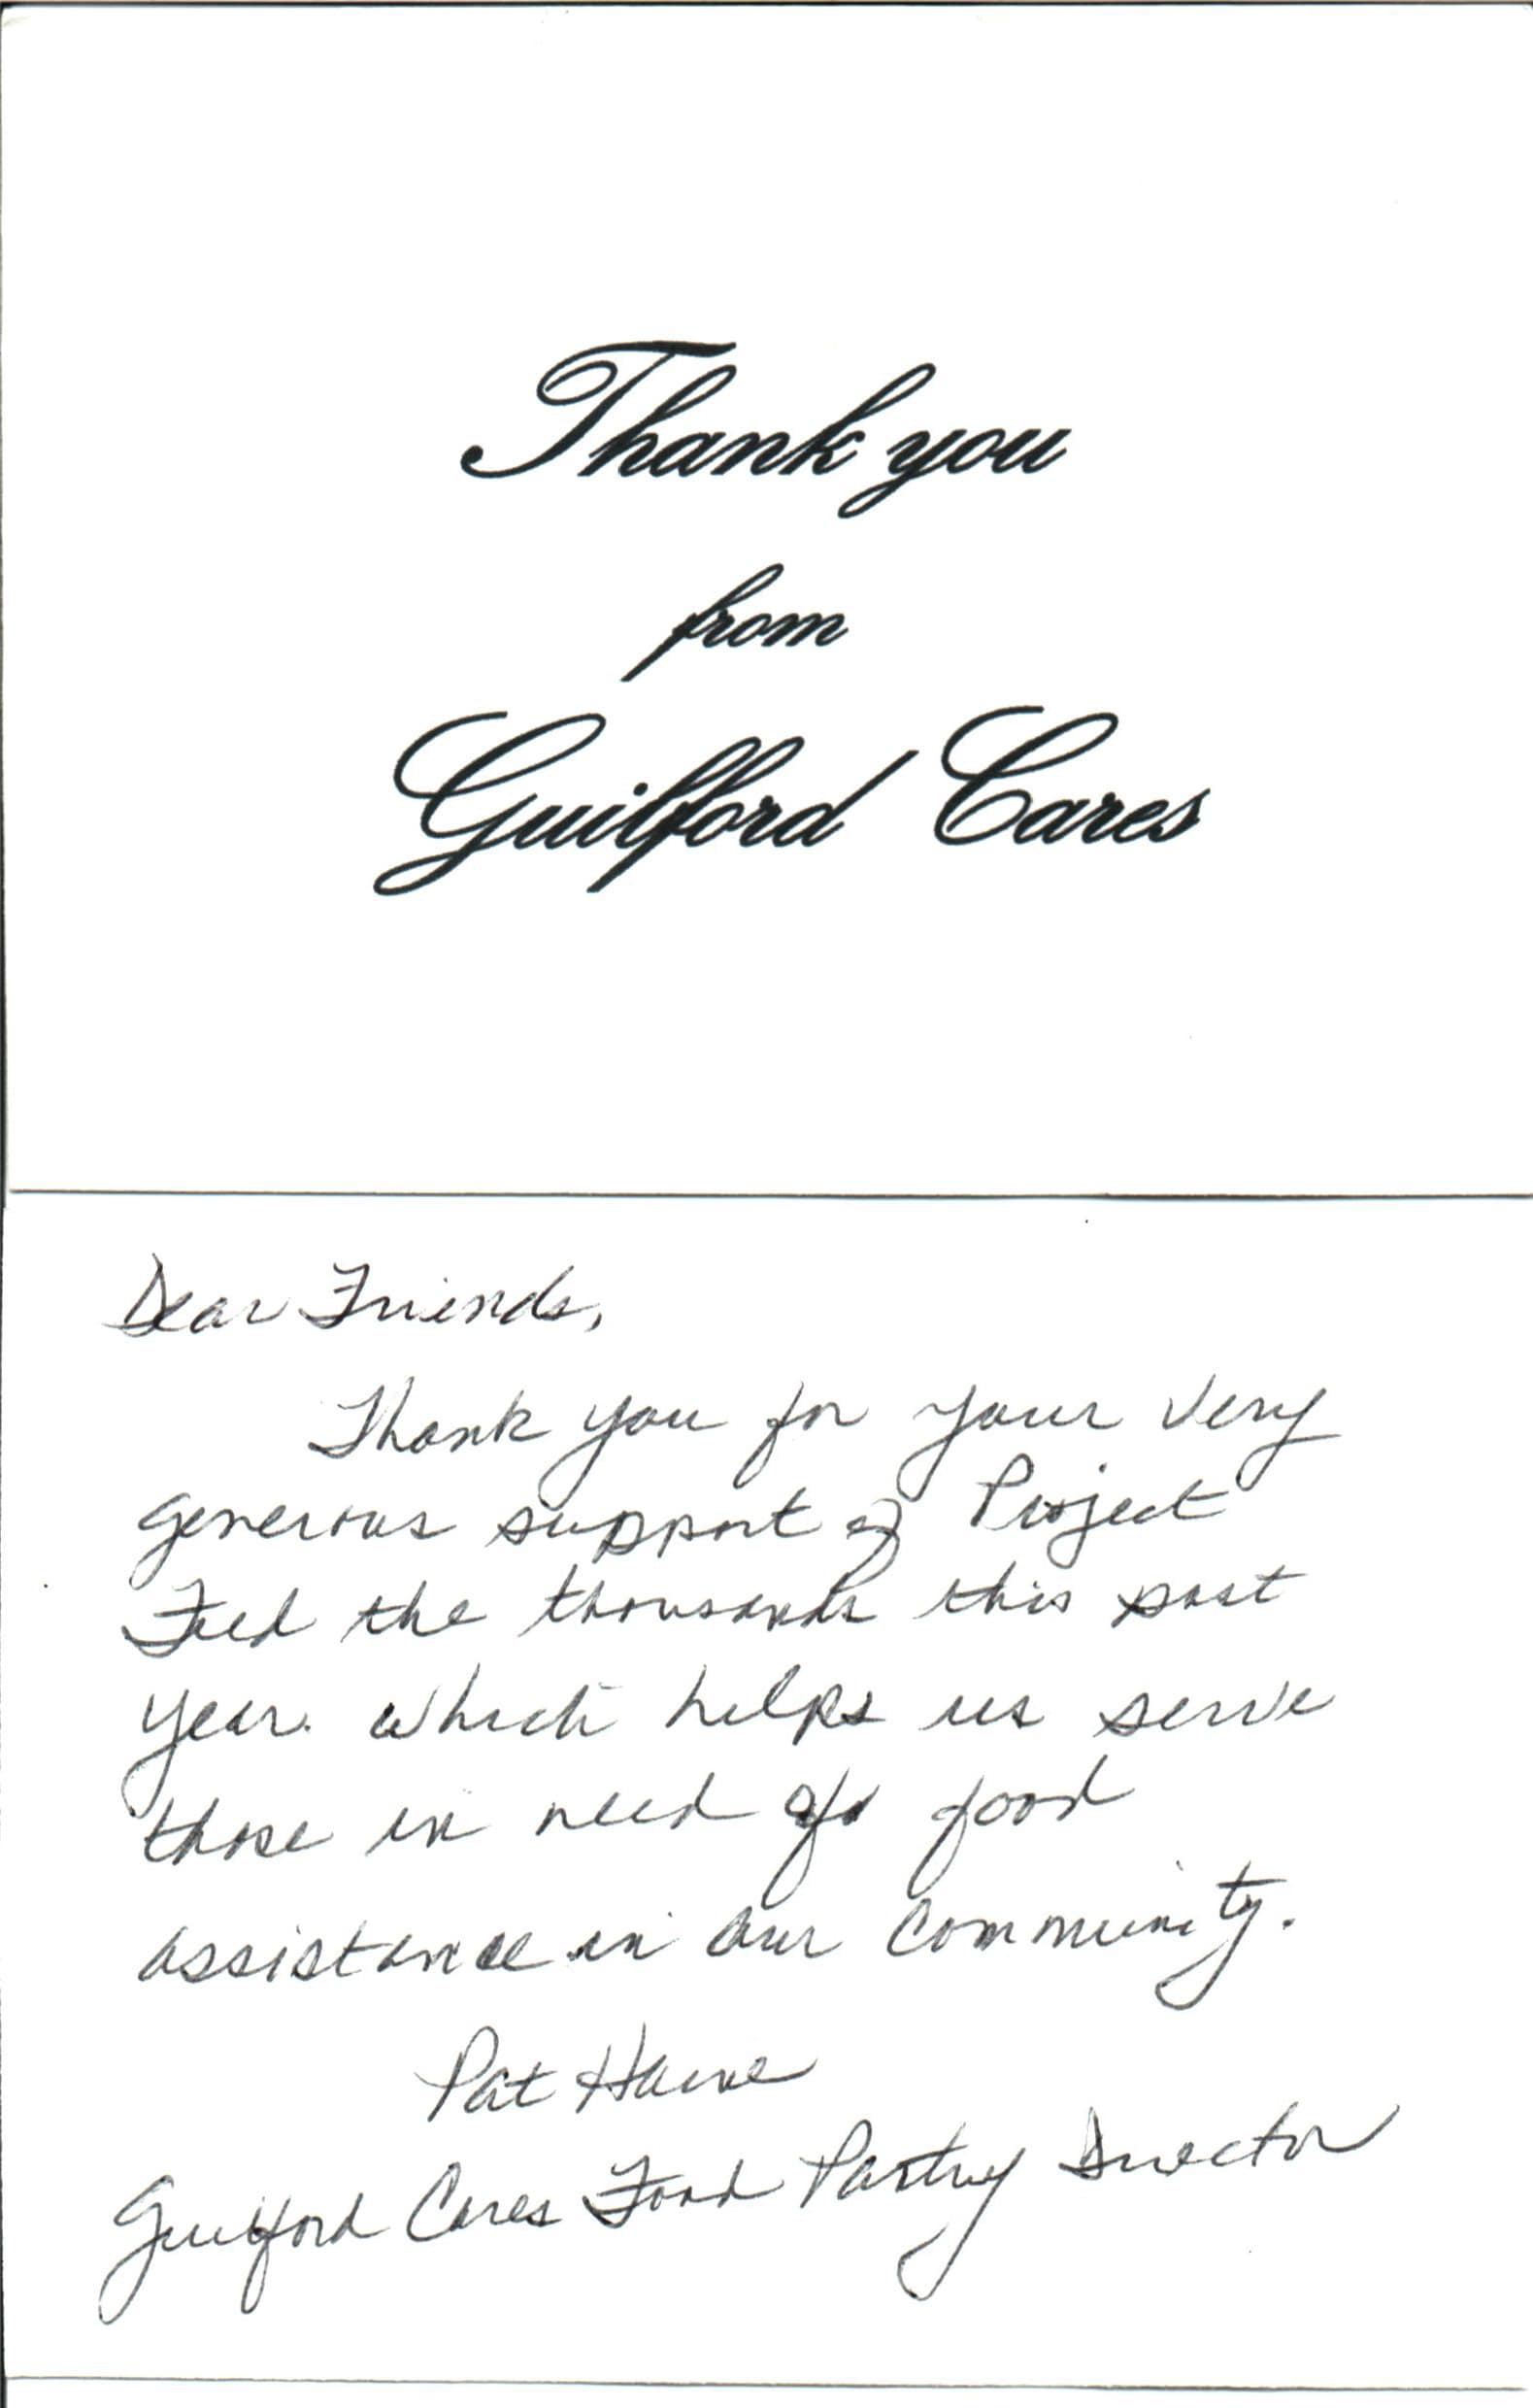 Thank you
from
Guilford Cares
Dear Friends,
Thank you for your very
generous support of Project
Feed the thousands this past
year. which helps us serve
those in need of food
assistance in our community.
Pat Haine
Guilford Cares Food Pantry Director